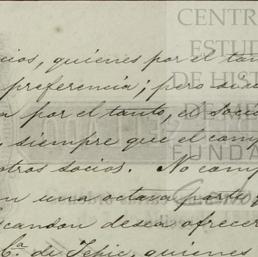 cios, quienes por el tan
preferencia; pero si a
por el tanto, el socio
, siempre que el comp
otros socios. No comp
n una octava parte
candon desea ofrecer
Cª. de Tepic, quienes
CENTRO
ESTUD
DE HIST
DE MÉ
FUND